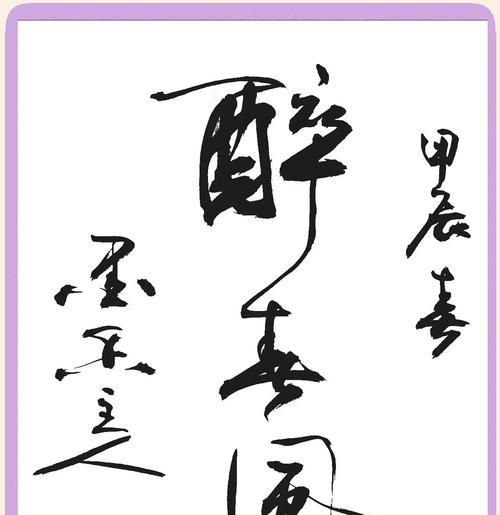 甲辰春
醉春風
墨乐主人